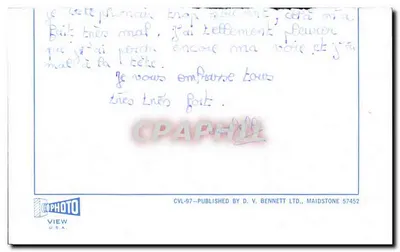 je téléphonais trop souvent, cela m'a
fait très mal. J'ai tellement pleuré
que j'ai perdu encore ma voie et j'ai
mal à la tête.
Je vous embrasse tous
très très fort.
CPAPHIL
CVL-97—PUBLISHED BY D. V. BENNETT LTD., MAIDSTONE 57452
PHOTO
VIEW
U.S.A.